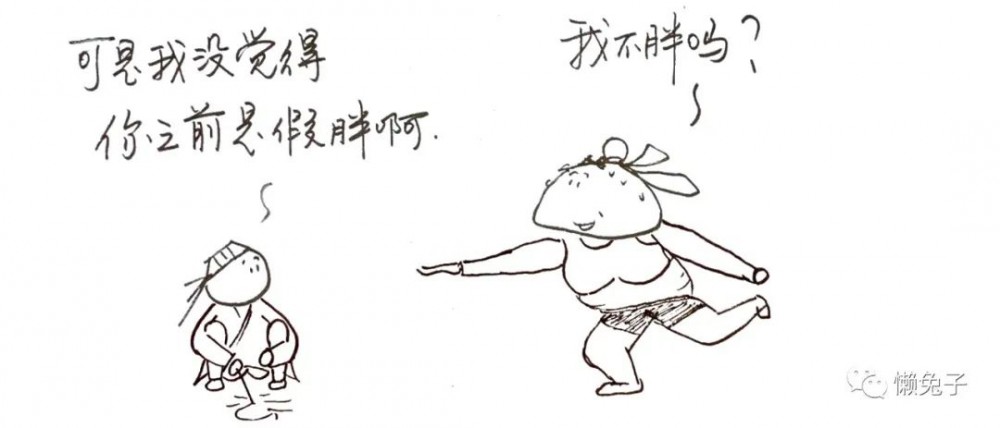 可是我没觉得
你之前是假胖啊.
我不胖吗?
懒兔子